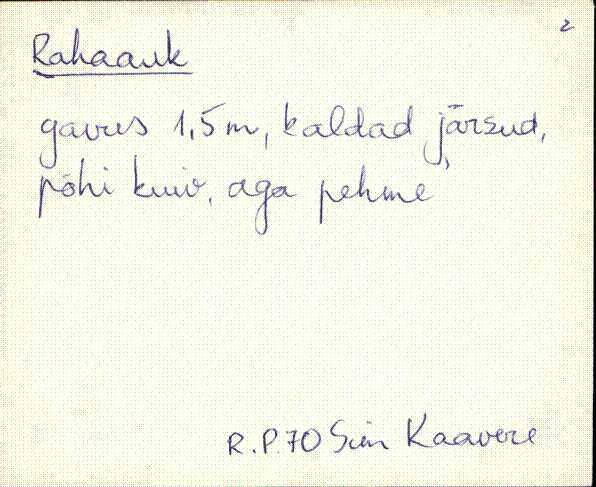 2
Rahaauk
gavus 1,5 m, kaldad järsud,
põhi kuiv, aga pehme
R.P. 70 Sim Kaavere